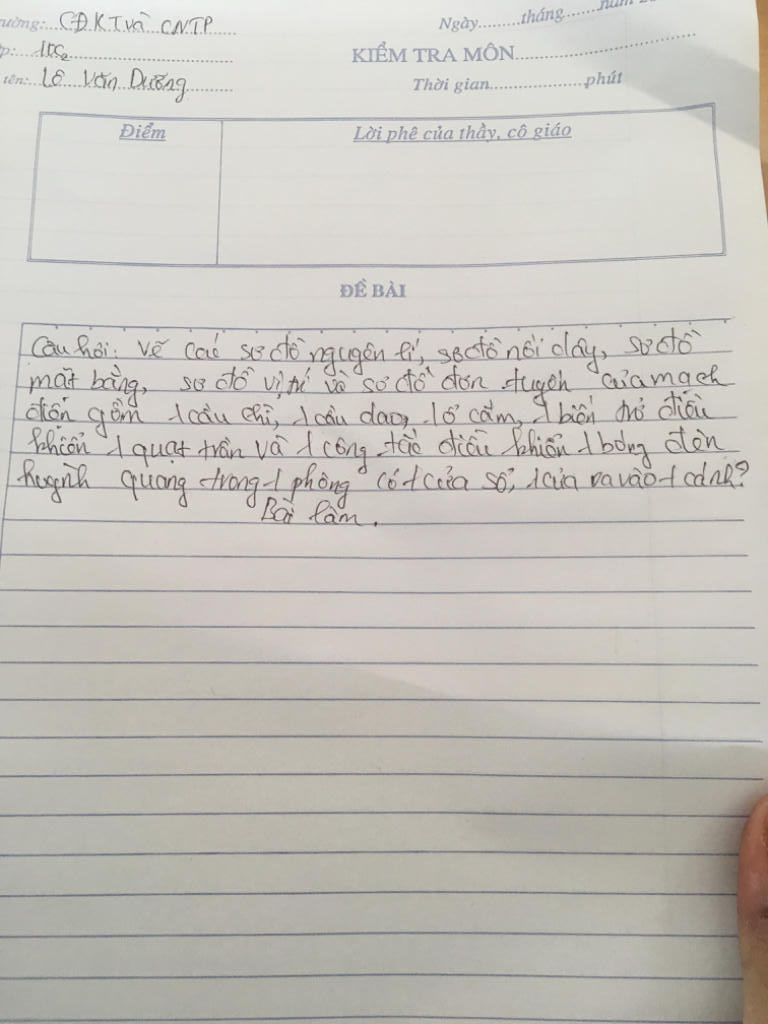 ường: CĐKT và CNTP
Ngày.........tháng.........năm 2
p: 10C2
KIỂM TRA MÔN
tên: Lê Văn Dưỡng
Thời gian....................phút
Điểm
Lời phê của thầy, cô giáo
ĐỀ BÀI
Câu hỏi: vẽ các sơ đồ nguyên lí, sơ đồ nối dây, sơ đồ
mặt bằng, sơ đồ vị trí và sơ đồ đơn tuyến của mạch
điện gồm 1 cầu chì, 1 cầu dao, 1 ổ cắm, 1 biến trở điều
khiển 1 quạt trần và 1 công tắc điều khiển 1 bóng đèn
huỳnh quang trong 1 phòng có 1 cửa sổ, 1 cửa ra vào 1 cánh?
Bài làm.